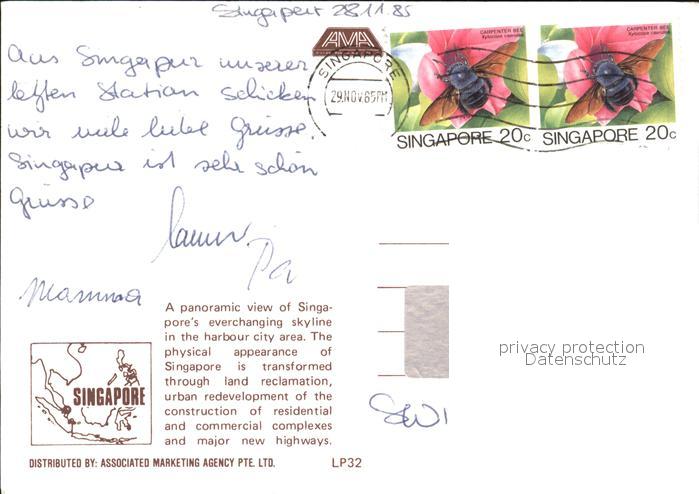 Singapur 28.11.85
Aus Singapur unserer
letzten Station schicken
wir viele liebe Grüsse.
Singapur ist sehr schön
Grüsse
Pa
Mamma
AMA
SINGAPORE
29.NOV.85.PM
CARPENTER BEE
Xylocopa caerulea
SINGAPORE 20c
CARPENTER BEE
Xylocopa caerulea
SINGAPORE 20c
privacy protection
Datenschutz
A panoramic view of Singa-
pore's everchanging skyline
in the harbour city area. The
physical appearance of
Singapore is transformed
through land reclamation,
urban redevelopment of the
construction of residential
and commercial complexes
and major new highways.
SINGAPORE
DISTRIBUTED BY: ASSOCIATED MARKETING AGENCY PTE. LTD.
LP32